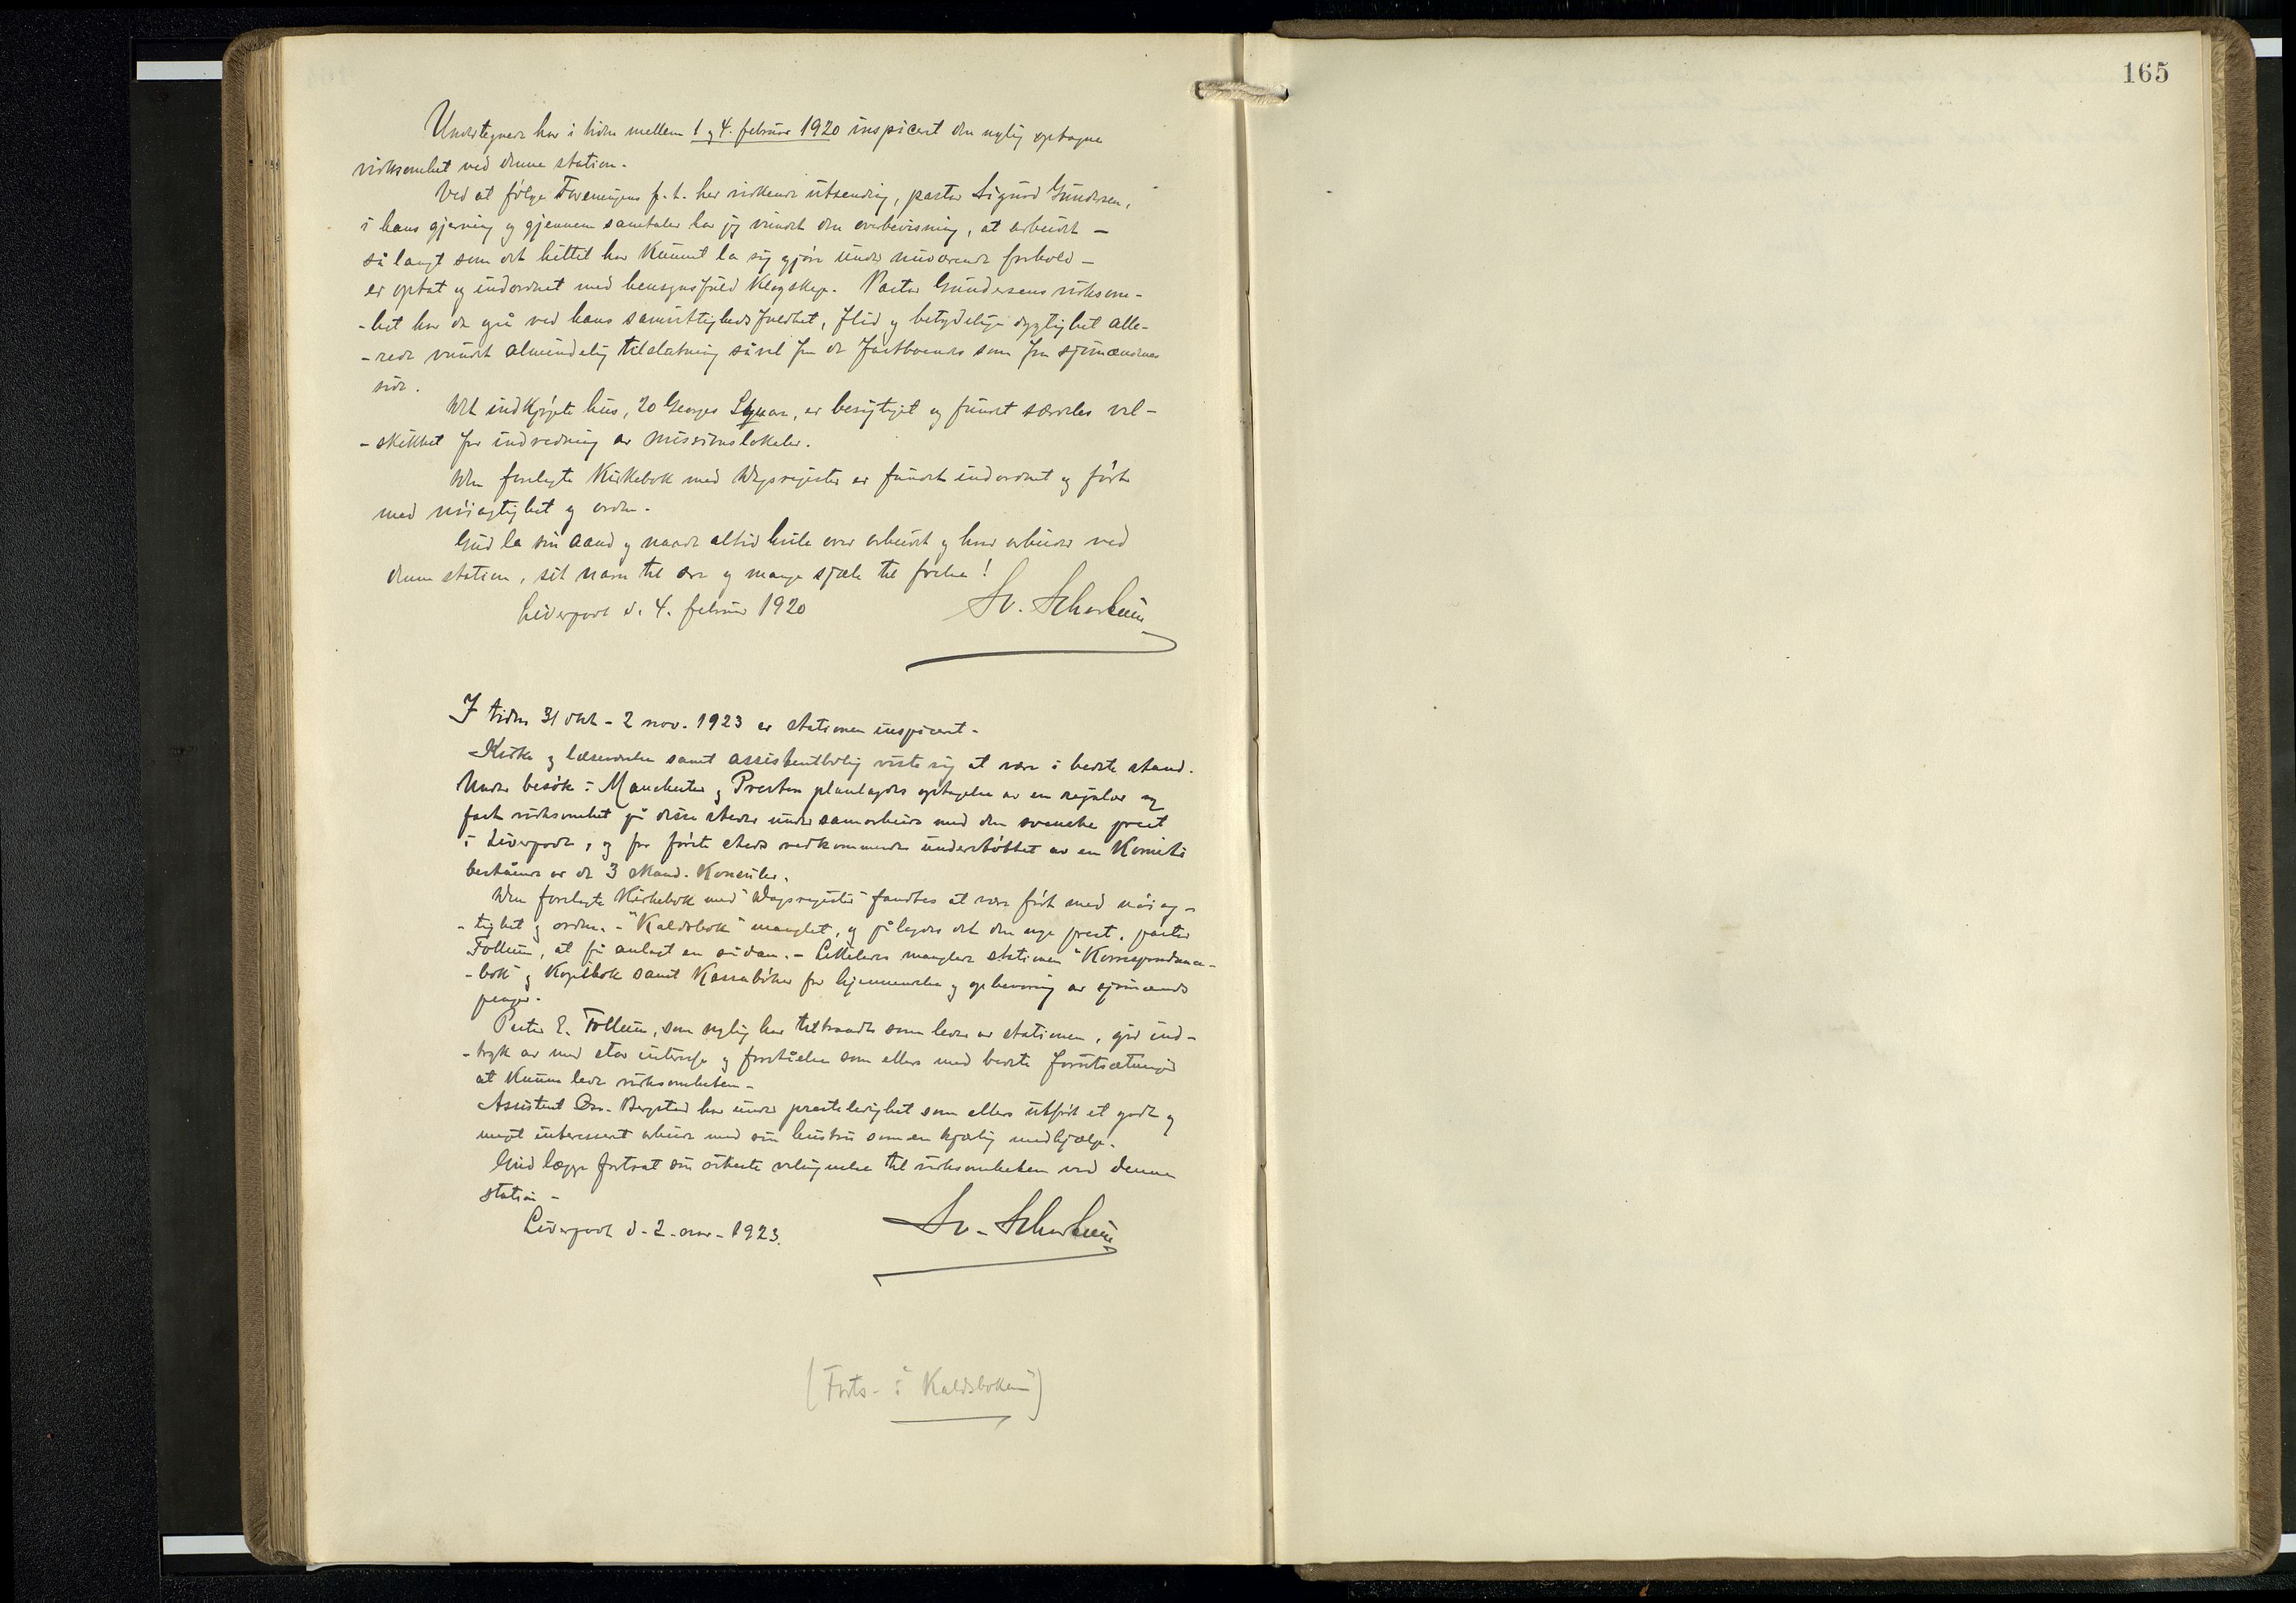 165
Undertegnede har i tiden mellem 1 og 4. februar 1920 inspicert den nylig optagne
virksomhet ved denne station.
Ved at følge Foreningens p.t. her virkende utsending, pastor Sigurd Gundersen,
i hans gjerning og gjennem samtaler har jeg vundet den overbevisning, at arbeidet –
så langt som det hittil har kunnet la sig gjøre under nuværende forhold –
er optat og indordnet med hensynsfuld klogskap. Pastor Gundersens virksom-
-het har da også ved hans samvittighedsfuldhet, flid og betydelige dygtighet alle-
-rede vundet almindelig tilslutning såvel fra de fastboendes som fra sjømændenes
side.
Det indkjøpte hus, 20 Georges Square, er besigtiget og fundet særdeles vel-
-skikket for indredning av missionslokaler.
Den forelagte Kirkebok med Dagsregister er fundet indordnet og ført
med nøiagtighet og orden.
Gud la sin Aand og naade altid hvile over arbeidet og hver arbeider ved
denne station, sit navn til ære og mange sjæle til frelse!
Liverpool d. 4. februar 1920
I tiden 31 okt - 2 nov. 1923 er stationen inspicert.
Kirke og læseværelse samt assistentbolig viste sig at være i bedste stand.
Under besøk i Manchester og Preston planlagdes optagelse av en regulær og
fast virksomhet på disse steder under samarbeide med den svenske prest
i Liverpool, og for første steds vedkommende understøttet av en Komite
bestående av de 3 skand. Konsuler.
Den forelagte Kirkebok med "Dagsregister" fandtes at være ført med nøiag-
-tighet og orden. - "Kaldsbok" manglet, og pålagdes det den nye prest, pastor
Follum, at få anlagt en sådan. - Likeledes manglede stationen "Korrespondance-
-bok" og Kopibok samt Kassabøker for hjemsendelse og opbevaring av sjømænds
penger.
Pastor E. Follum, som nylig har tiltraadt som leder av stationen, gir ind-
-tryk av med stor interesse og forståelse som ellers med bedste forutsætninger
at kunne lede virksomheten.
Assistent Osv. Bergsted har under presteledighet som ellers utført et godt og
meget interessert arbeide med sin hustru som en kjærlig medhjælp.
Gud lægge fortsat sin rikeste velsignelse til virksomheten ved denne
station -
Liverpool d. 2. nov. 1923.
(Forts. i "Kaldsboken")